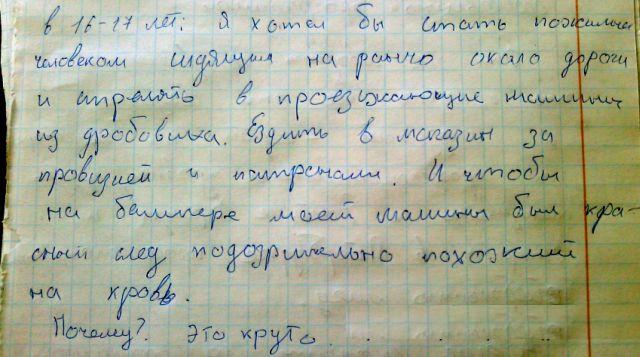 в 16-17 лет: я хотел бы стать пожилым
человеком сидящим на ранчо около дороги
и стрелять в проезжающие машины
из дробовика. Ездить в магазин за
провизией и патронами. И чтобы
на бампере моей машины был кра-
сный след подозрительно похожий
на кровь.
Почему? Это круто . . . . . ..